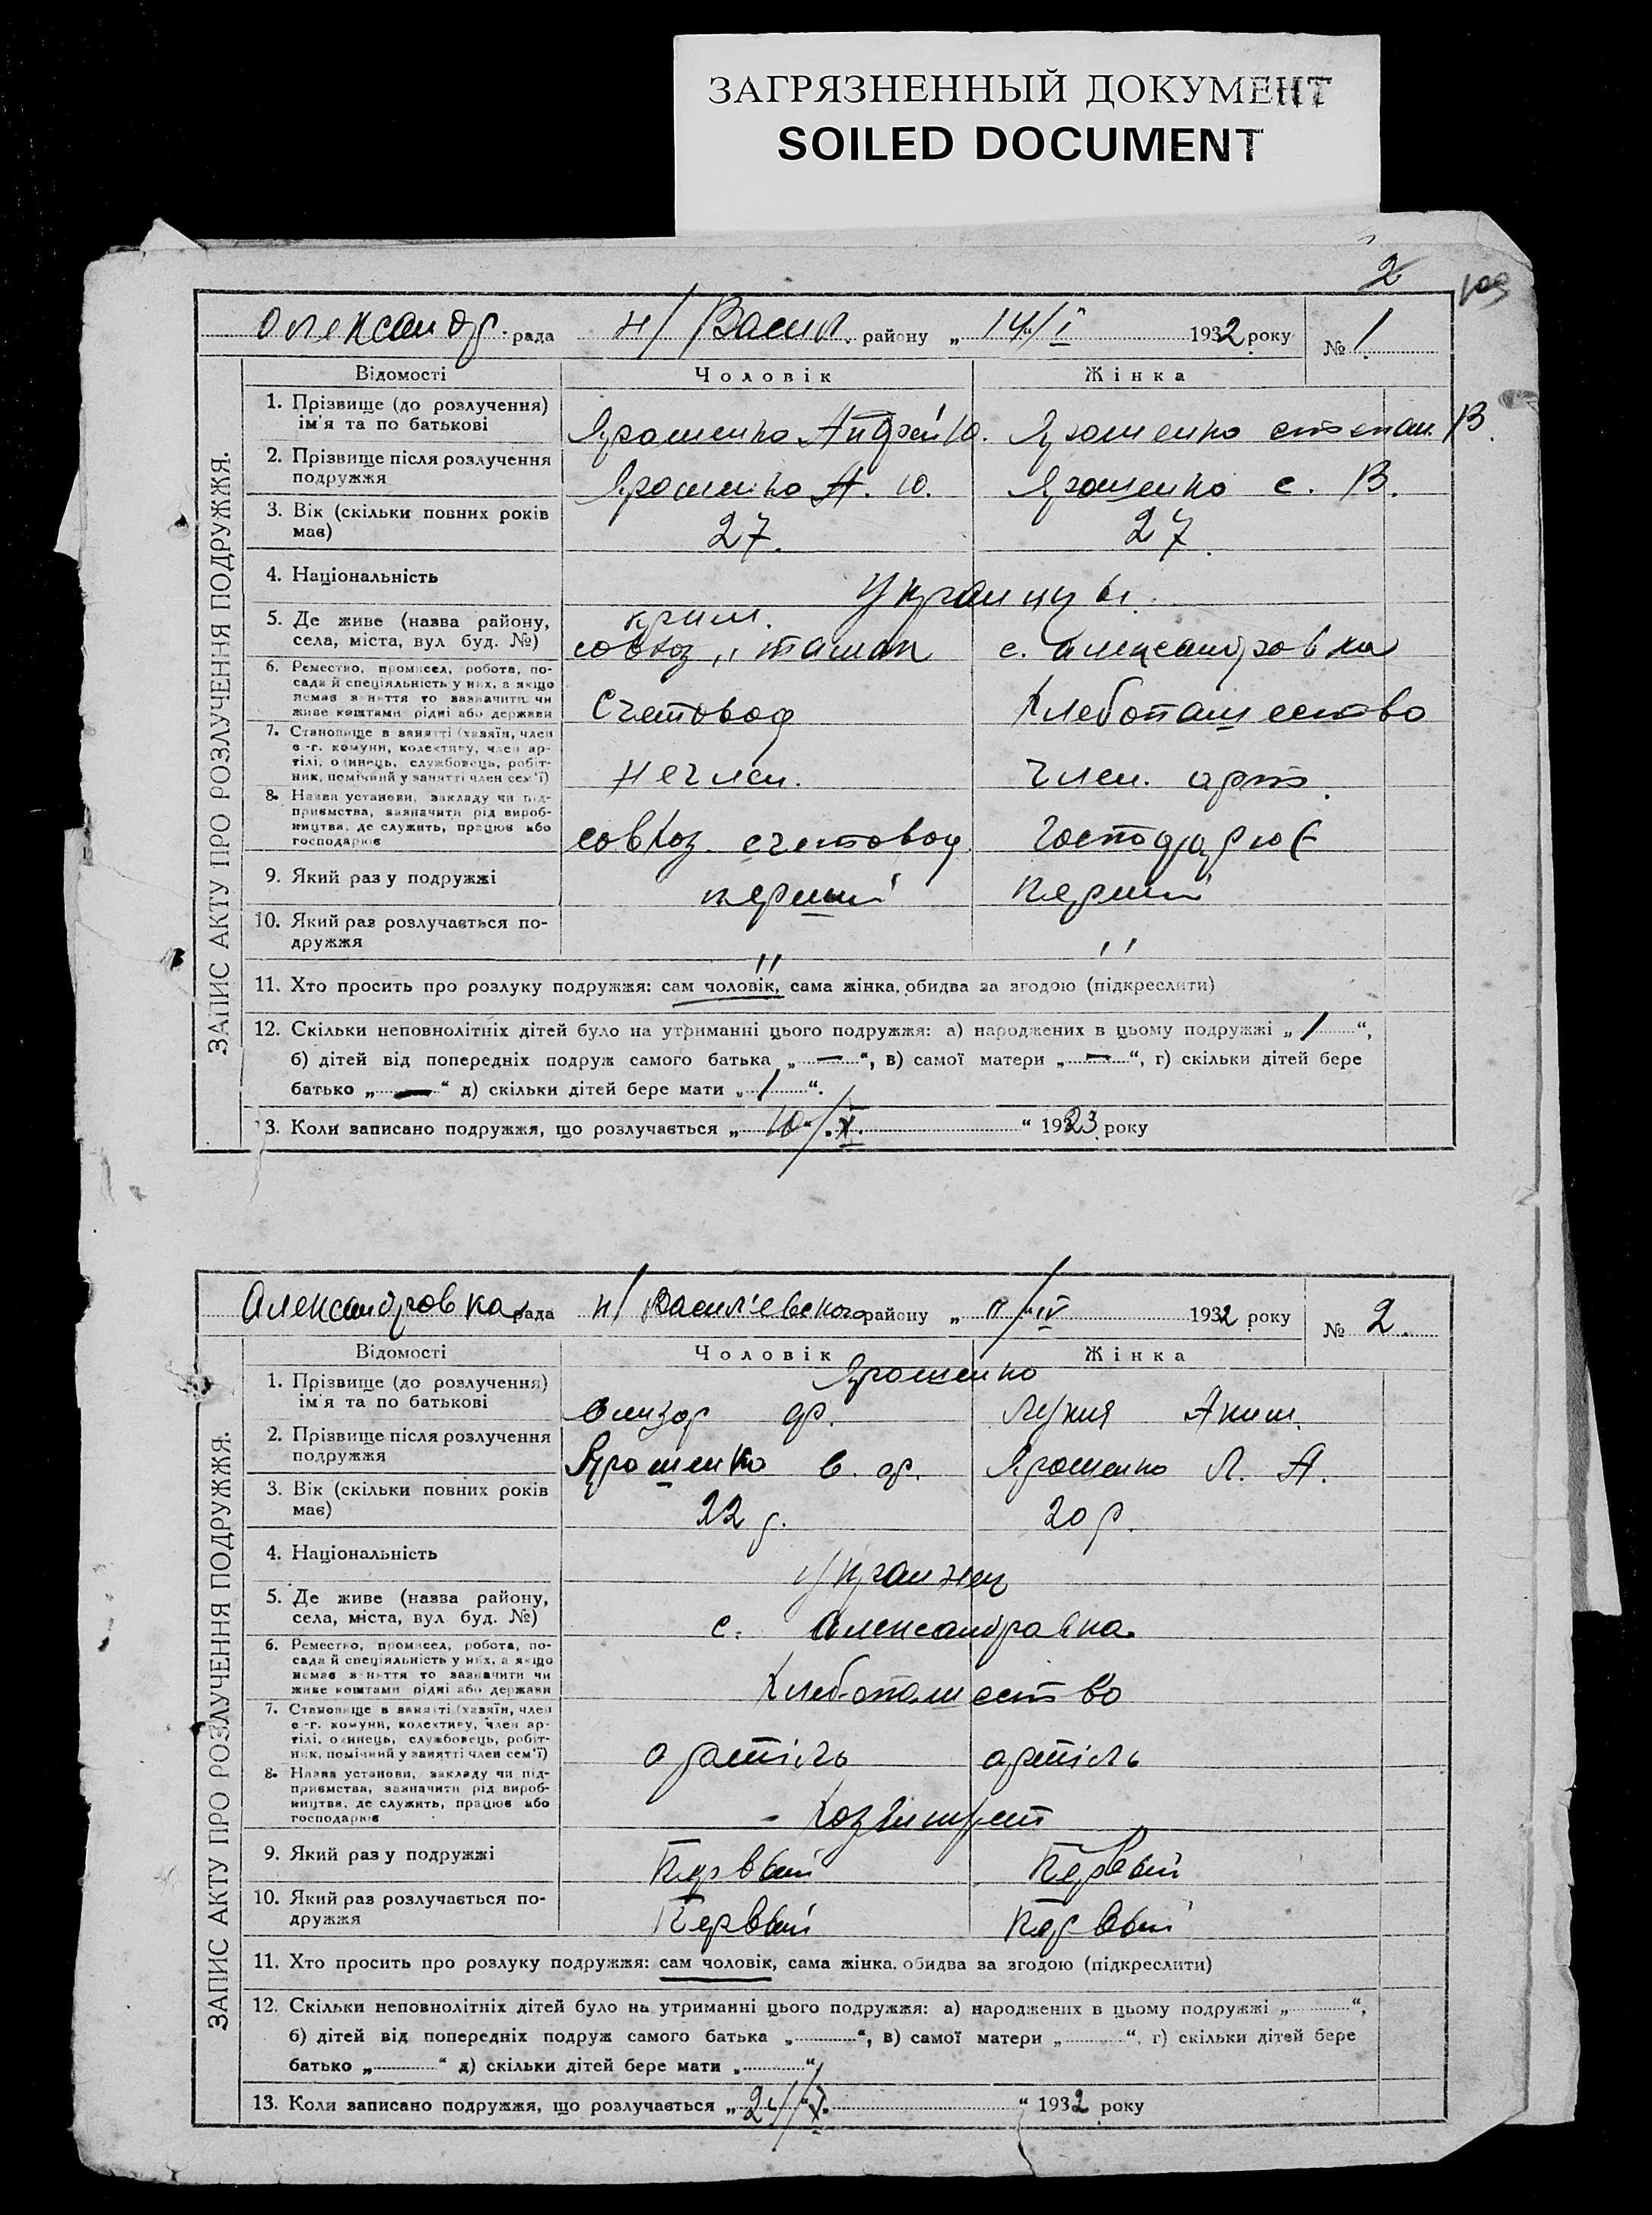 ЗАГРЯЗНЕННЫЙ ДОКУМЕНТ
SOILED DOCUMENT
2
ЗАПИС АКТУ ПРО РОЗЛУЧЕННЯ ПОДРУЖЖЯ.
Олександр. рада Н/Васил. району „14/I 1932 року № 1
Відомості Чоловік Жінка
1. Прізвище (до розлучення) ім'я та по батькові Ярошенко Андрей Ю. Ярошенко степан. В.
2. Прізвище після розлучення подружжя Ярошенко А. Ю. Ярошенко с. В.
3. Вік (скільки повних років має) 27. 27.
4. Національність Украинцы.
5. Де живе (назва району, села, міста, вул буд. №) крим. совхоз „таман с. александровка
6. Ремество, промисел, робота, посада й спеціяльність у них, а якщо немає заняття то зазначити чи живе коштами рідні або держави Счетовод Хлебопашество
7. Становище в занятті (хазяїн, член с.-г. комуни, колективу, член артілі, одинець, службовець, робітник, помічний у занятті член сем'ї) нечлен. член. арт.
8. Назва установи, закладу чи підприємства, зазначити рід виробництва, де служить, працює або господарює совхоз. счетовод Господарює
9. Який раз у подружжі перший перший
10. Який раз розлучається подружжя " "
11. Хто просить про розлуку подружжя: сам чоловік, сама жінка, обидва за згодою (підкреслити)
12. Скільки неповнолітніх дітей було на утриманні цього подружжя: а) народжених в цьому подружжі „ 1 “,
б) дітей від попередніх подруж самого батька „ — “, в) самої матери „ — “, г) скільки дітей бере
батько „ — “ д) скільки дітей бере мати „ 1 “.
13. Коли записано подружжя, що розлучається „10/X. “ 1923 року
ЗАПИС АКТУ ПРО РОЗЛУЧЕННЯ ПОДРУЖЖЯ.
Александровка рада Н/Васил'евского району „ /IV 1932 року № 2.
Відомості Чоловік Жінка
Ярошенко
1. Прізвище (до розлучення) ім'я та по батькові Аким.
2. Прізвище після розлучення подружжя Ярошенко Ярошенко Л. А.
3. Вік (скільки повних років має) 22 р. 20 р.
4. Національність Украинец
5. Де живе (назва району, села, міста, вул буд. №) с. Александравка.
6. Ремество, промисел, робота, посада й спеціяльність у них, а якщо немає заняття то зазначити чи живе коштами рідні або держави Хлебопашество
7. Становище в занятті (хазяїн, член с.-г. комуни, колективу, член артілі, одинець, службовець, робітник, помічний у занятті член сем'ї) артіль артіль
8. Назва установи, закладу чи підприємства, зазначити рід виробництва, де служить, працює або господарює
9. Який раз у подружжі Первый Первый
10. Який раз розлучається подружжя Первый Первый
11. Хто просить про розлуку подружжя: сам чоловік, сама жінка, обидва за згодою (підкреслити)
12. Скільки неповнолітніх дітей було на утриманні цього подружжя: а) народжених в цьому подружжі „ “,
б) дітей від попередніх подруж самого батька „ “, в) самої матери „ “, г) скільки дітей бере
батько „ “ д) скільки дітей бере мати „ “
13. Коли записано подружжя, що розлучається „ “ 1932 року